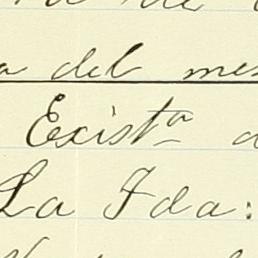 a del mes
Existª
La Ida: